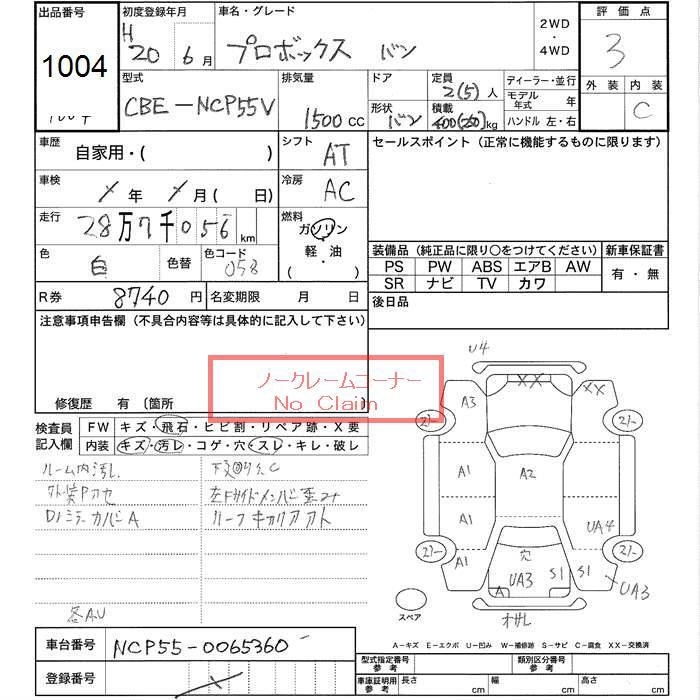 出品番号 初度登録年月 車名・グレード 2WD ・ 4WD 評価点
1004 H 20 6月 プロボックス バン 3
型式 排気量 ドア 定員 2(5)人 ディーラー・並行 外装 内装
CBE-NCP55V 1500cc 形状 バン 積載 400(250)kg モデル年式 年 C
ハンドル 左・右
車歴 自家用・( ) シフト AT セールスポイント(正常に機能するものに限ります)
車検 年 月( 日) 冷房 AC
走行 28万7千056km 燃料 ガソリン
軽・油
・( )
色 白 色替 色コード 058
装備品(純正品に限り○をつけてください) 新車保証書
PS PW ABS エアB AW 有・無
SR ナビ TV カワ
R券 8740円 名変期限 月 日 後日品
注意事項申告欄(不具合内容等は具体的に記入して下さい)
ノークレームコーナー
No Claim
修復歴 有(箇所 )
検査員記入欄 FW キズ・飛石・ヒビ割・リペア跡・X要
内装 キズ・汚レ・コゲ・穴・スレ・キレ・破レ
ルーム内汚れ.
外装Pカセ
Dノミラーカバー A
ルーフキャリアアト
各A.U
U4
XX XX
A3
A1 A2
A1 UA4
A1 穴 UA3 S1 S1 UA3
A
スペア
A-キズ E-エクボ U-凹み W-補修跡 S-サビ C-腐食 XX-交換済
車台番号 NCP55-0065360
登録番号
型式指定番号 参考 類別区分番号 参考
車庫証明用 参考 長さ cm 幅 cm 高さ cm